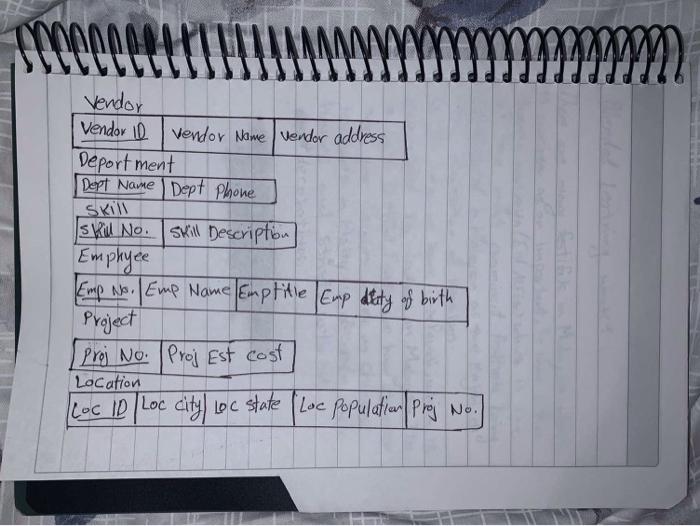 Vendor
Vendor ID Vendor Name Vendor address
Deportment
Dept Name Dept Phone
Skill
Skill No. Skill Description
Emphyee
Emp No. Emp Name Emptitle Emp of birth
Project
Proj No. Proj Est cost
Location
Loc ID Loc city Loc state Loc Population Proj No.